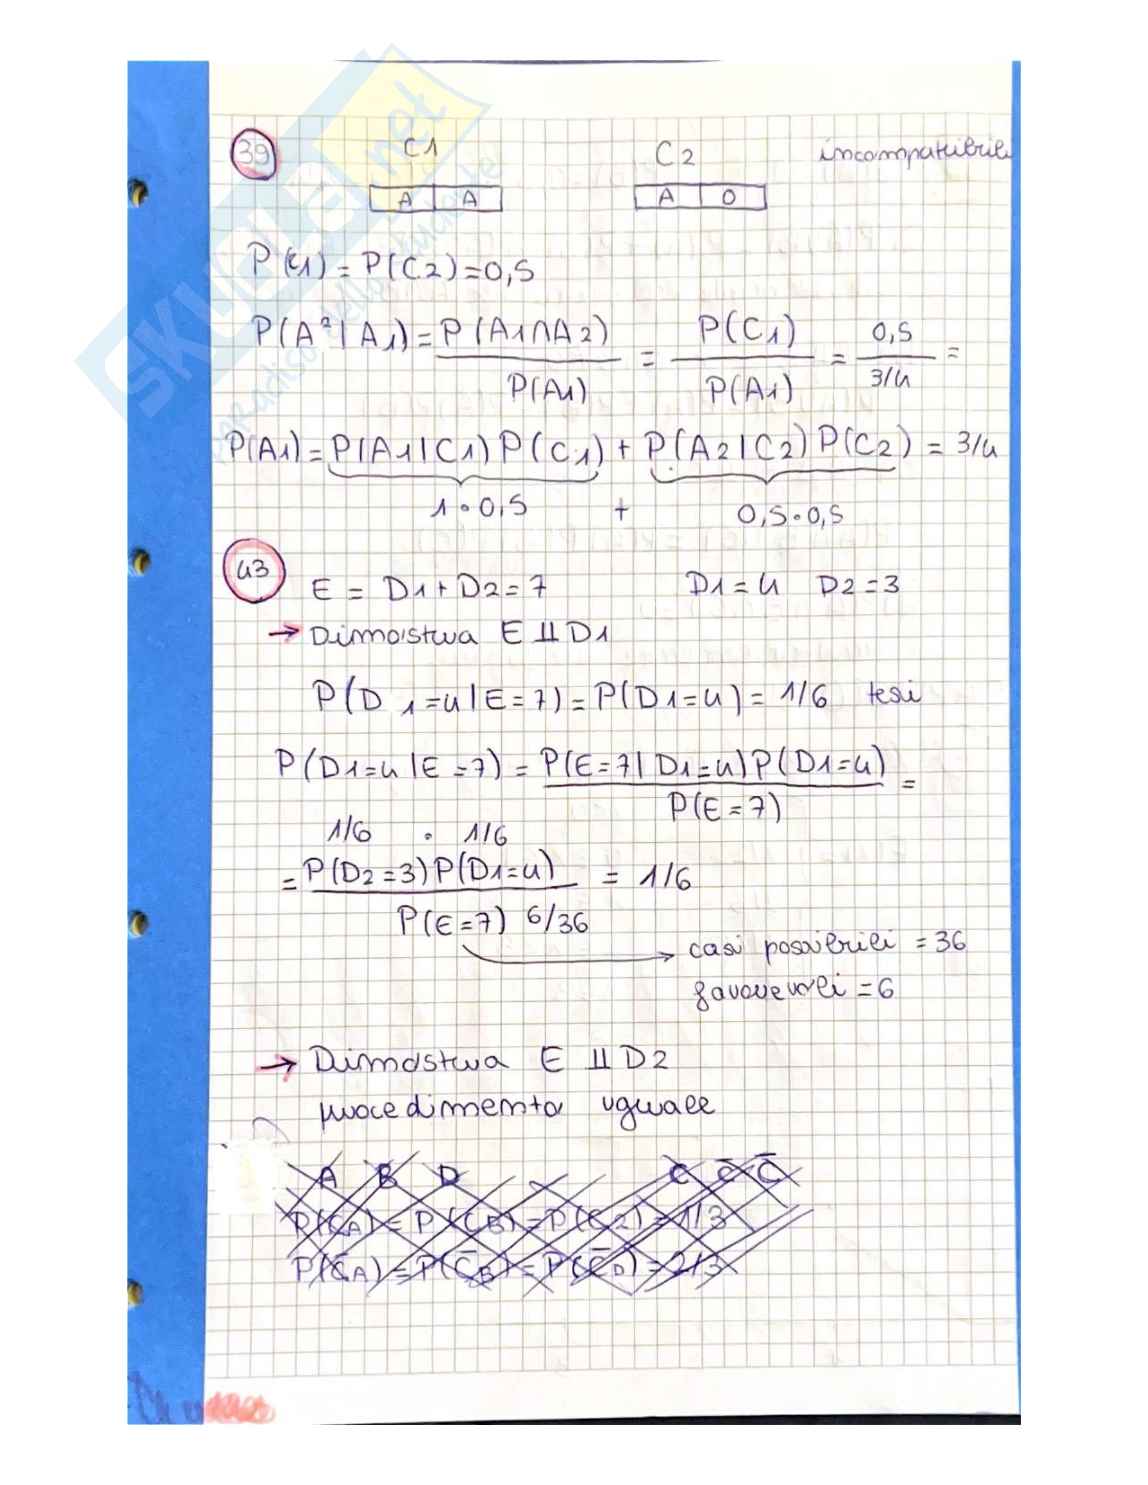 39 C1 C2 incompatibili
A A A O
P(C1) = P(C2) = 0,5
P(A² | A1) = P(A1∩A2) / P(A1) = P(C1) / P(A1) = 0,5 / 3/4 =
P(A1) = P(A1|C1) P(C1) + P(A2|C2) P(C2) = 3/4
1 · 0,5 + 0,5 · 0,5
43 E = D1 + D2 = 7 D1 = 4 D2 = 3
→ Dimostra E ⫫ D1
P(D1=4 | E=7) = P(D1=4) = 1/6 tesi
P(D1=4 | E=7) = P(E=7 | D1=4) P(D1=4) / P(E=7) =
1/6 · 1/6
= P(D2=3) P(D1=4) / P(E=7) 6/36 = 1/6
casi possibili = 36
favorevoli = 6
→ Dimostra E ⫫ D2
procedimento uguale
A B D C C̄ C̄
P(CA) = P(CB) = P(C2) = 1/3
P(C̄A) = P(C̄B) = P(C̄D) = 2/3
SKUOLA.net
paradiso dello studente